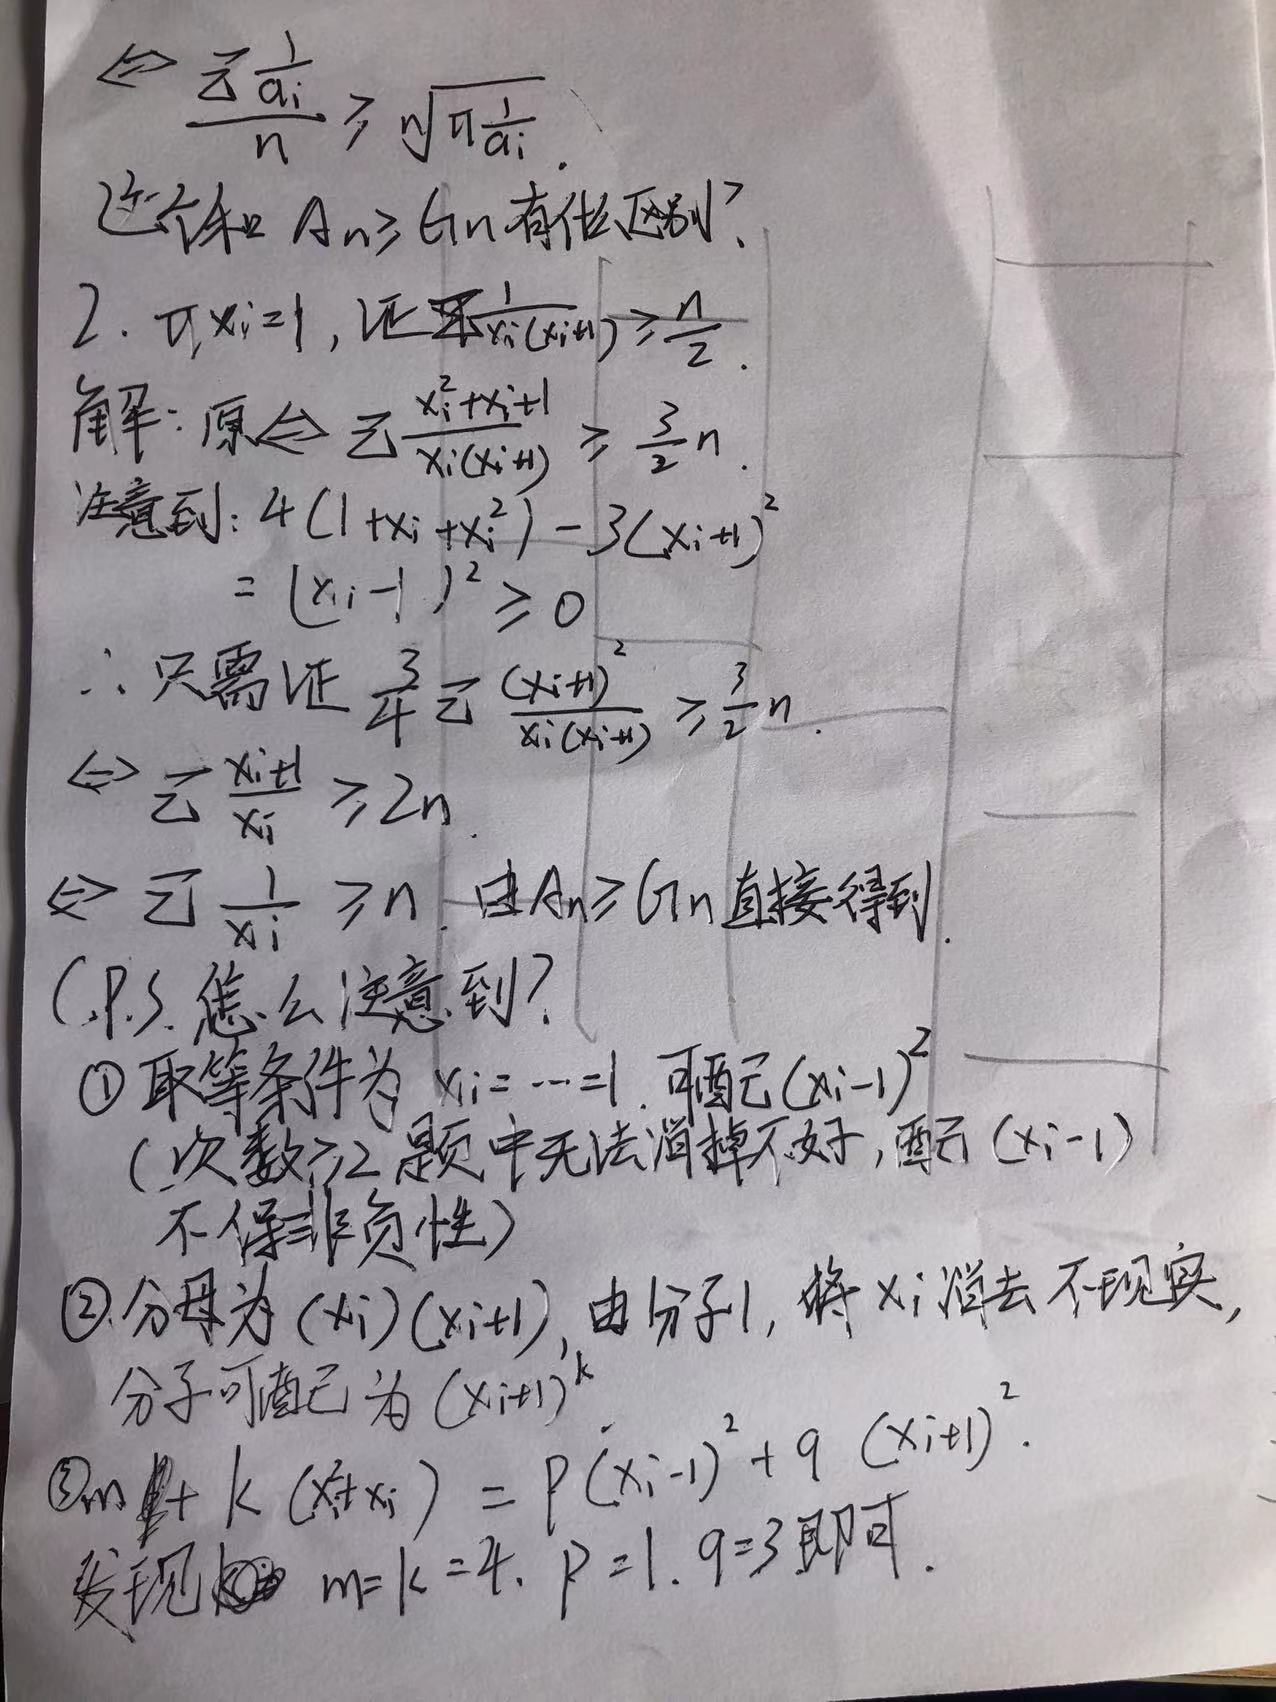 ⇔ Σ(1/aᵢ)/n ≥ ⁿ√(π 1/aᵢ).
这个和 Aₙ≥Gₙ有什么区别?
2. πxᵢ=1, 证 Σ 1/(xᵢ(xᵢ+1)) ≥ n/2.
解: 原⇔ Σ (xᵢ²+xᵢ+1)/(xᵢ(xᵢ+1)) ≥ 3/2 n.
注意到: 4(1+xᵢ+xᵢ²)-3(xᵢ+1)²
= (xᵢ-1)² ≥ 0
∴ 只需证 3/4 Σ (xᵢ+1)²/(xᵢ(xᵢ+1)) ≥ 3/2 n.
⇔ Σ (xᵢ+1)/xᵢ ≥ 2n.
⇔ Σ 1/xᵢ ≥ n. 由Aₙ≥Gₙ直接得到.
(P.S. 怎么注意到?
① 取等条件为 xᵢ=…=1. 可配(xᵢ-1)²
(次数≥2题中无法消掉不好, 配(xᵢ-1)
不保非负性)
② 分母为(xᵢ)(xᵢ+1), 由分子1, 将xᵢ消去不现实,
分子可配为(xᵢ+1)ᵏ.
③ m + k(x²+xᵢ) = p(xᵢ-1)²+q(xᵢ+1)².
发现 m=k=4. p=1. q=3即可.